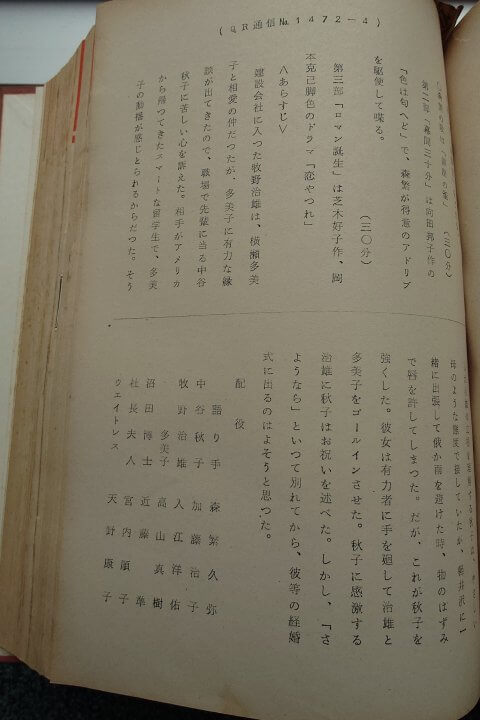 （ＱＲ通信№１４７２－４）
（三〇分）
第二部「幕間三十分」は向田邦子作の
「色は匂へど」で、森繁が得意のアドリブ
を駆使して喋る。
（三〇分）
第三部「ロマン誕生」は芝木好子作、岡
本克己脚色のドラマ「恋やつれ」
＜あらすじ＞
建設会社に入つた牧野治雄は、横瀬多美
子と相愛の仲だつたが、多美子に有力な縁
談が出てきたので、職場で先輩に当る中谷
秋子に苦しい心を訴えた。相手がアメリカ
から帰つてきたスマートな留学生で、多美
子の動揺が感じとられるからだつた。そう
母のような態度で接していたが、軽井沢に一
緒に出張して俄か雨を避けた時、物のはずみ
で唇を許してしまつた。だが、これが秋子を
強くした。彼女は有力者に手を廻して治雄と
多美子をゴールインさせた。秋子に感激する
治雄に秋子はお祝いを述べた。しかし、「さ
ようなら」といつて別れてから、彼等の結婚
式に出るのはよそうと思つた。
配役
語り手 森繁久弥
中谷秋子 加藤治子
牧野治雄 入江洋佑
多美子 高山真樹
沼田博士 近藤準
社長夫人 宮内順子
ウエイトレス 天野康子